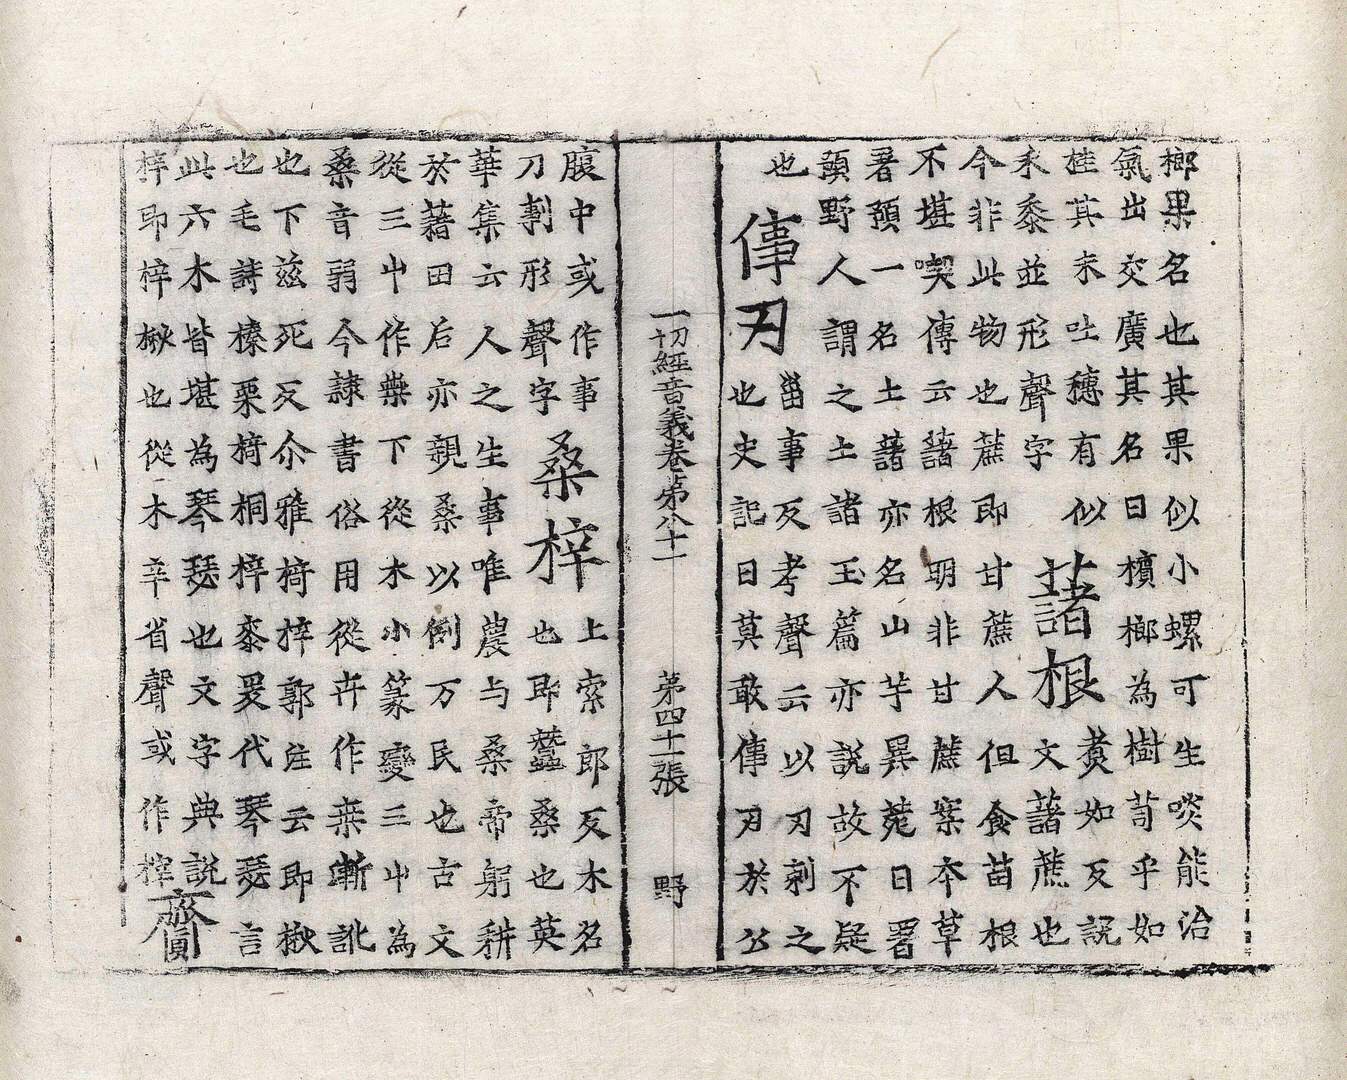 榔果名也其果似小螺可生啖能治
氣出交廣其名曰檳榔為樹苛乎如
桂其末吐穗有似
藷根
煑如反説
禾黍並形聲字
文藷蔗也
今非此物也蔗即甘蔗人但食苗根
不堪喫傳云藷根明非甘蔗案本草
署預一名土藷亦名山芋異苑曰署
預野人謂之土諸玉篇亦説故不疑
也
倳刃
葘事反考聲云以刃剚之
也史記曰莫敢倳刃於公
一切經音義卷第八十一
第四十一張
野
腹中或作事
桑梓
上索郎反木名
刀剚形聲字
也即蠶桑也英
華集云人之生事唯農与桑帝躬耕
於藉田后亦親桑以衘万民也古文
從三屮作桒下從木小篆變三屮為
桑音弱今隸書俗用從卉作桒漸訛
也下茲死反尒雅椅梓郭注云即楸
也毛詩榛栗椅桐梓桼爰代琴瑟言
此六木皆堪為琴瑟也文字典説
梓即梓楸也從木辛省聲或作榟
齋圓